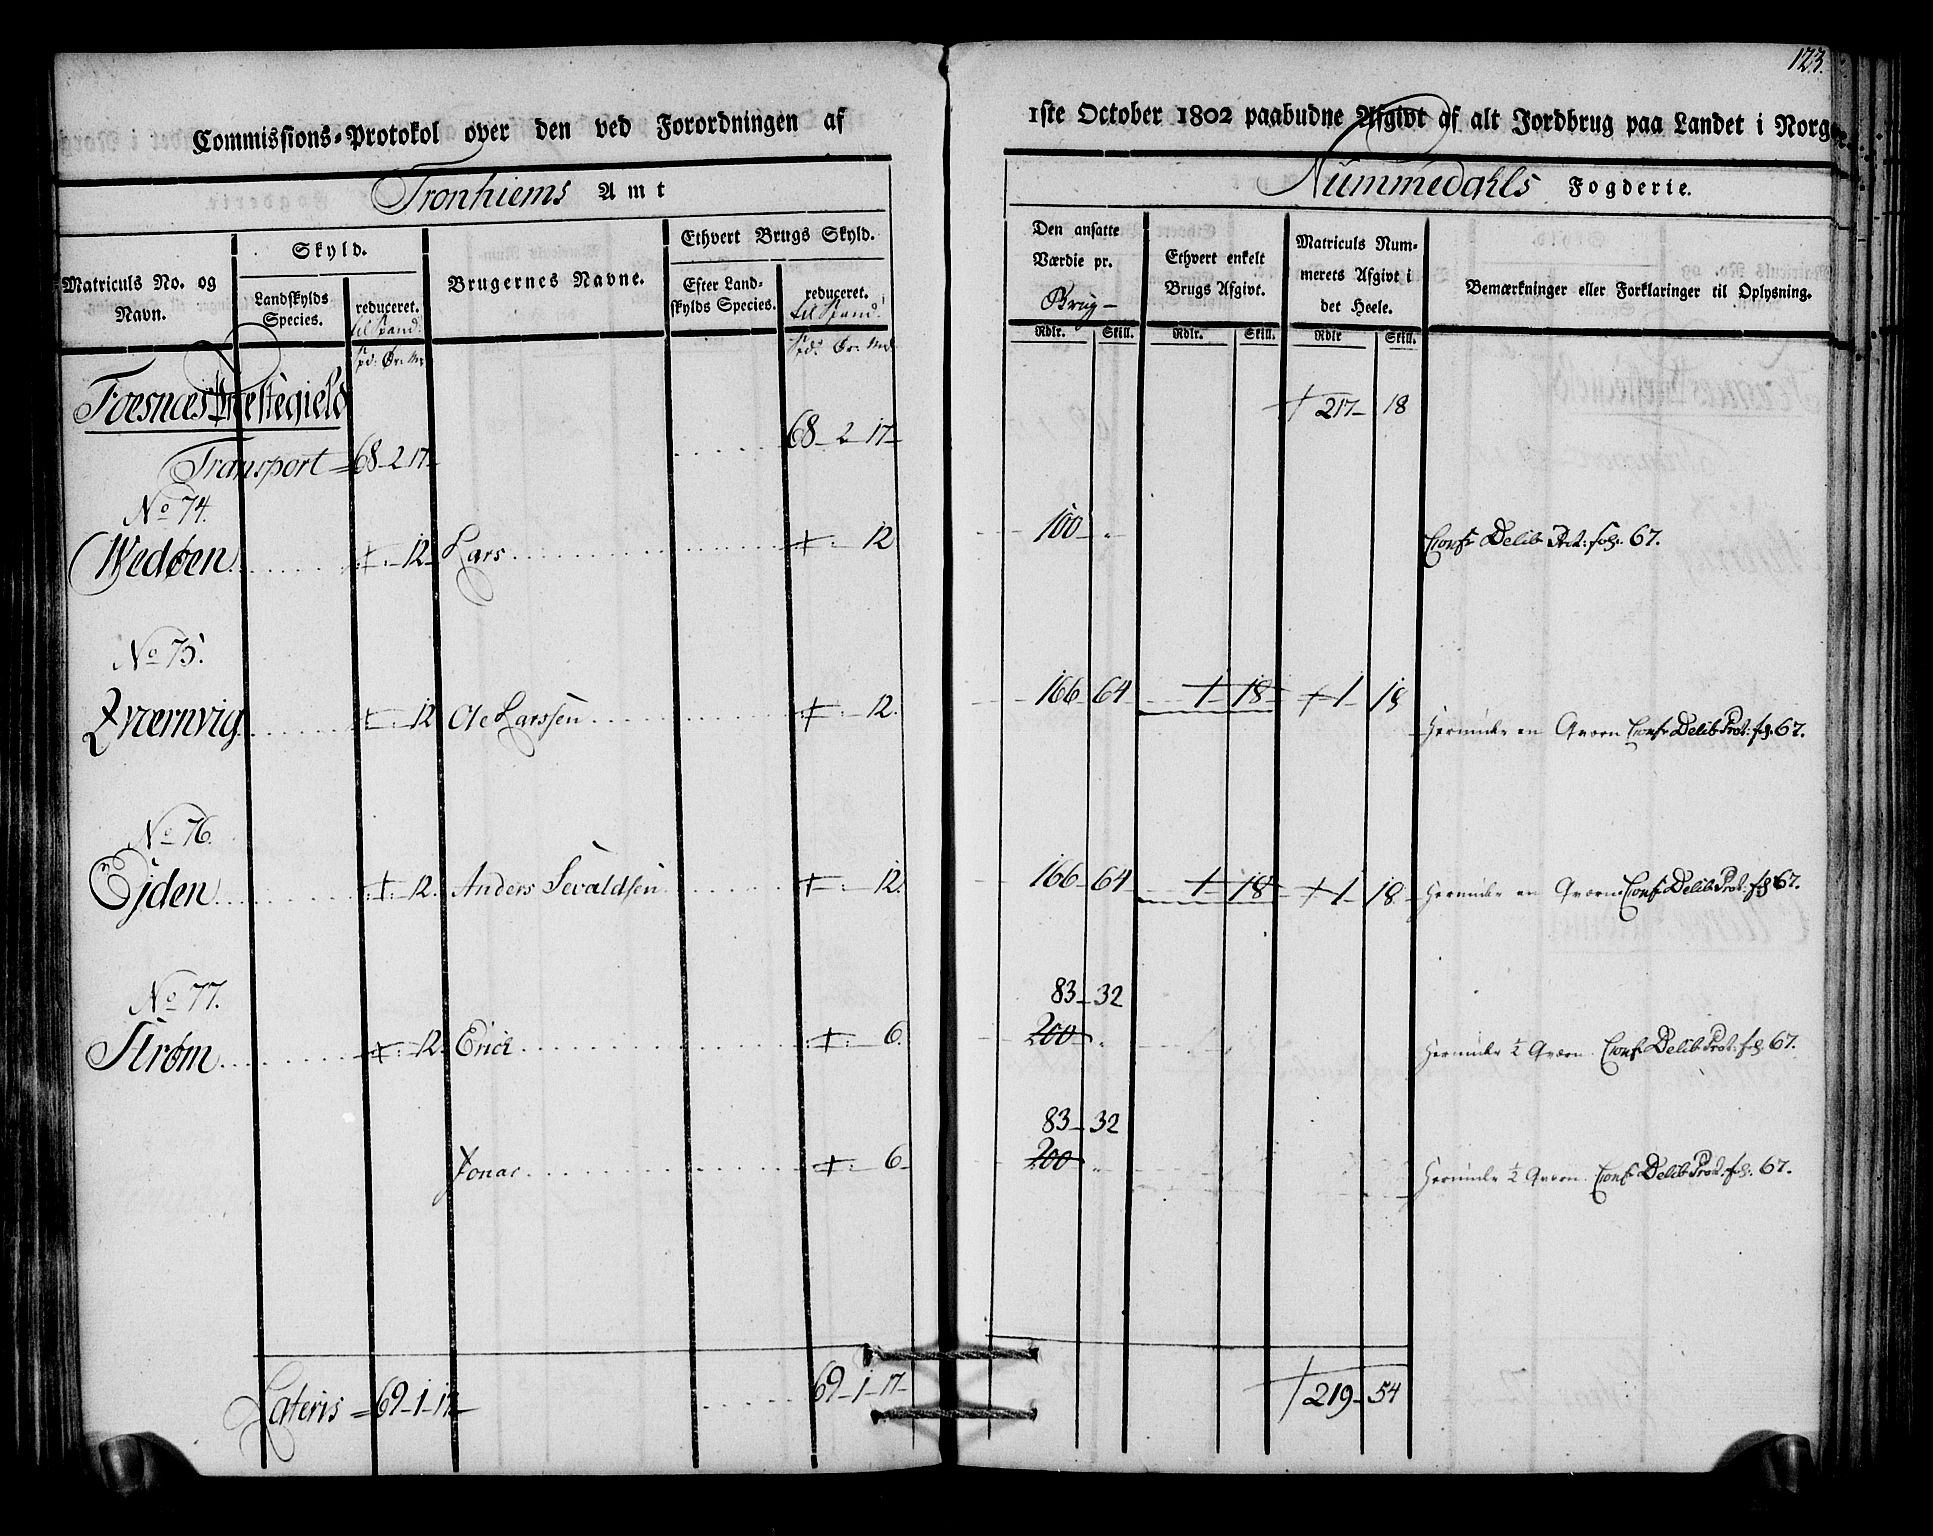 123.
Commissions-Protokol over den ved Forordningen af 1ste October 1802 paabudne Afgivt af alt Jordbrug paa Landet i Norge
Tronhiems Amt
Nummedahls Fogderie.
Matriculs No. og Navn.
Skyld.
Landskylds Species.
reduceret. til Spand:
Brugernes Navne.
Ethvert Brugs Skyld.
Efter Landskylds Species.
reduceret. til Spand:
Den ansatte Værdie pr. Brug-
Ethvert enkelt Brugs Afgivt.
Matriculs Nummerets Afgivt i det Heele.
Bemærkninger eller Forklaringer til Oplysning.
Rdlr. Skill. Rdlr. Skill. Rdlr Skill.
Foesnæs Præstegield
217- 18
Transport 68-2-17- 68-2-17-
No 74.
Wedøen 12 Lars 12 100 Conf: Delib: Prot: fol: 67.
No 75.
Qværnvig 12 Ole Larssen 12. 166 64 1 18 1 18 Herunder en Qværn Conf: Delib: Prot: fol. 67.
No 76.
Ejden 12. Anders Sevaldsen 12. 166 64 1 18 1 18 Herunder en Qværn Conf: Delib: Prot: fol 67.
No 77.
83 32
Strøm 12. Erich 6. 200 Herunder ½ Qværn. Conf: Delib: Prot: fol 67.
83 32
Jonas 6 200 Herunder ½ Qværn. Conf: Delib: Prot: fol. 67.
Lateris 69-1-17- 69-1-17- 219- 54